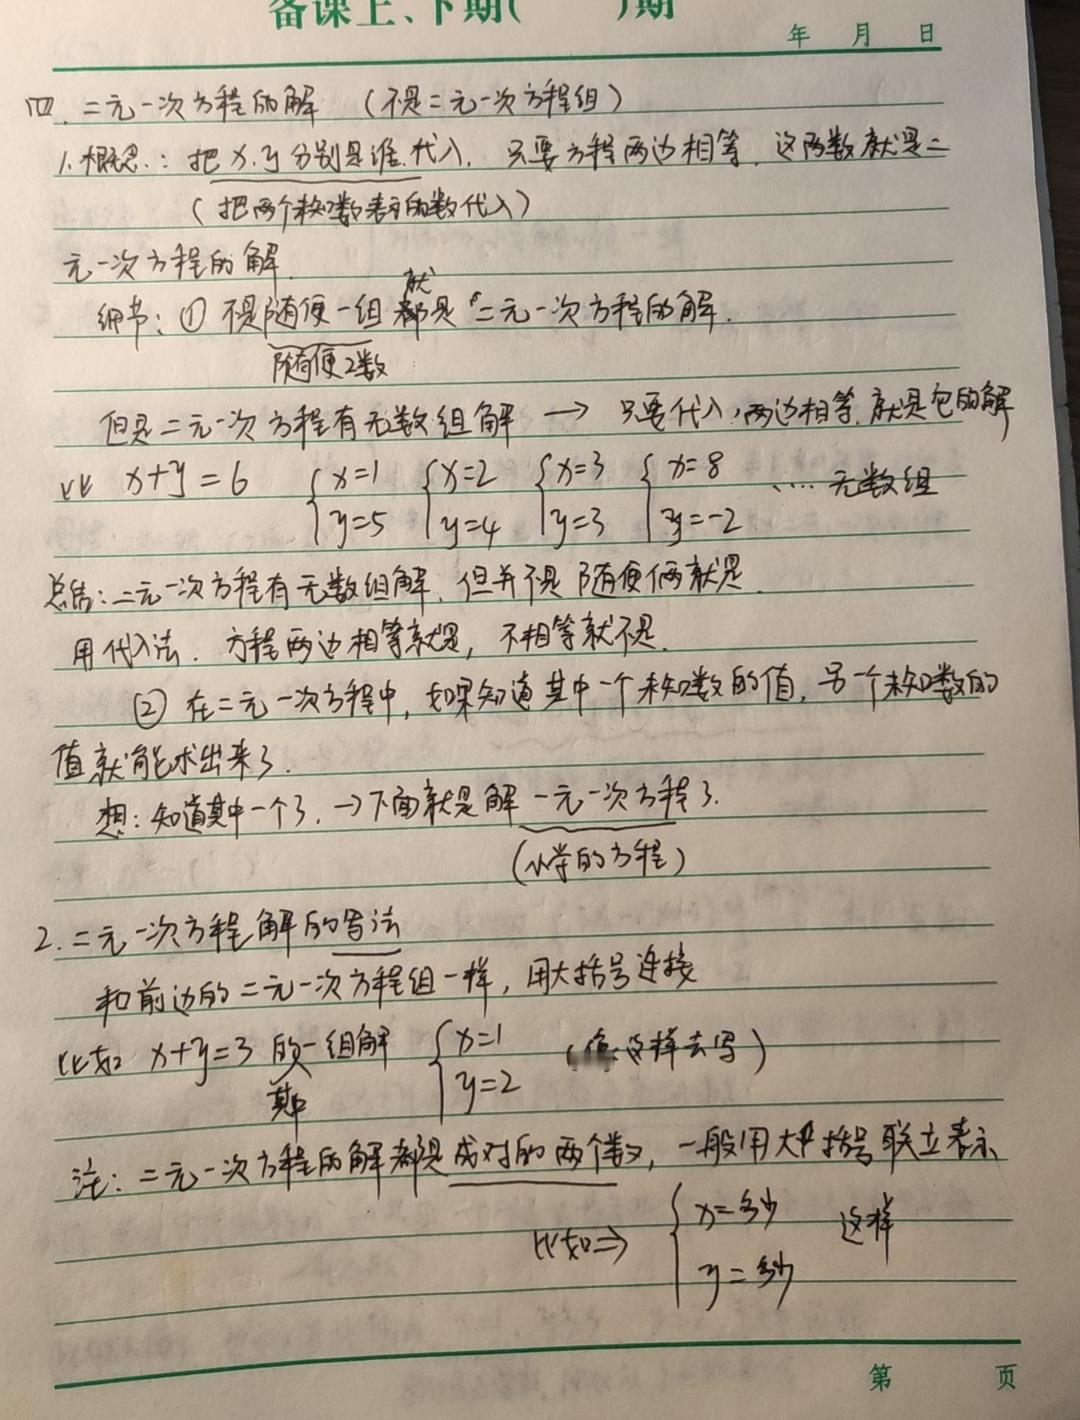 备课上、下期( )期
年 月 日
四. 二元一次方程的解 (不是二元一次方程组)
1.概念: 把x.y分别是谁.代入, 只要方程两边相等, 这两数就是二
(把两个未知数表示的数代入)
元一次方程的解.
细节: ① 不是随便一组都是二元一次方程的解.
就
随便2数
但是二元一次方程有无数组解 → 只要代入,两边相等,就是它的解
比 x+y=6 {x=1 {x=2 {x=3 {x=8 .... 无数组
y=5 y=4 y=3 y=-2
总结: 二元一次方程有无数组解, 但并不是随便俩就是.
用代入法. 方程两边相等就是, 不相等就不是.
② 在二元一次方程中, 如果知道其中一个未知数的值, 另一个未知数的
值就能求出来了.
想: 知道其中一个了. →下面就是解一元一次方程了.
(小学的方程)
2.二元一次方程解的写法
和前边的二元一次方程组一样, 用大括号连接
比如 x+y=3 的一组解 {x=1 (这样去写)
其中 y=2
注: 二元一次方程的解都是成对的两个数, 一般用大括号联立表示
比如⇒ {x=多少 这样
y=多少
第 页